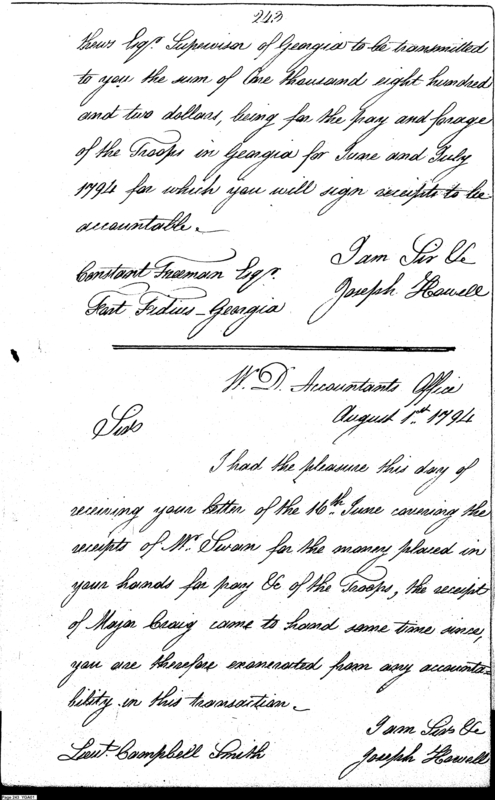 243
thews Esqr. Supervisor of Georgia to be transmitted
to you the sum of One thousand eight hundred
and two dollars, being for the pay and forage
of the Troops in Georgia for June and July
1794 for which you will sign receipts to be
accountable.
I am Sir &c
Constant Freeman Esqr.
Joseph Howell
Fort Fidius - Georgia
W. D. Accountants Office
August 1st. 1794
Sir
I had the pleasure this day of
receiving your letter of the 16th. June covering the
receipts of Mr. Swan for the money placed in
your hands for pay &c of the Troops, the receipt
of Major Craig came to hand some time since,
you are therefore exonerated from any accounta=
bility in this transaction.
I am Sir &c
Lieut. Campbell Smith
Joseph Howell